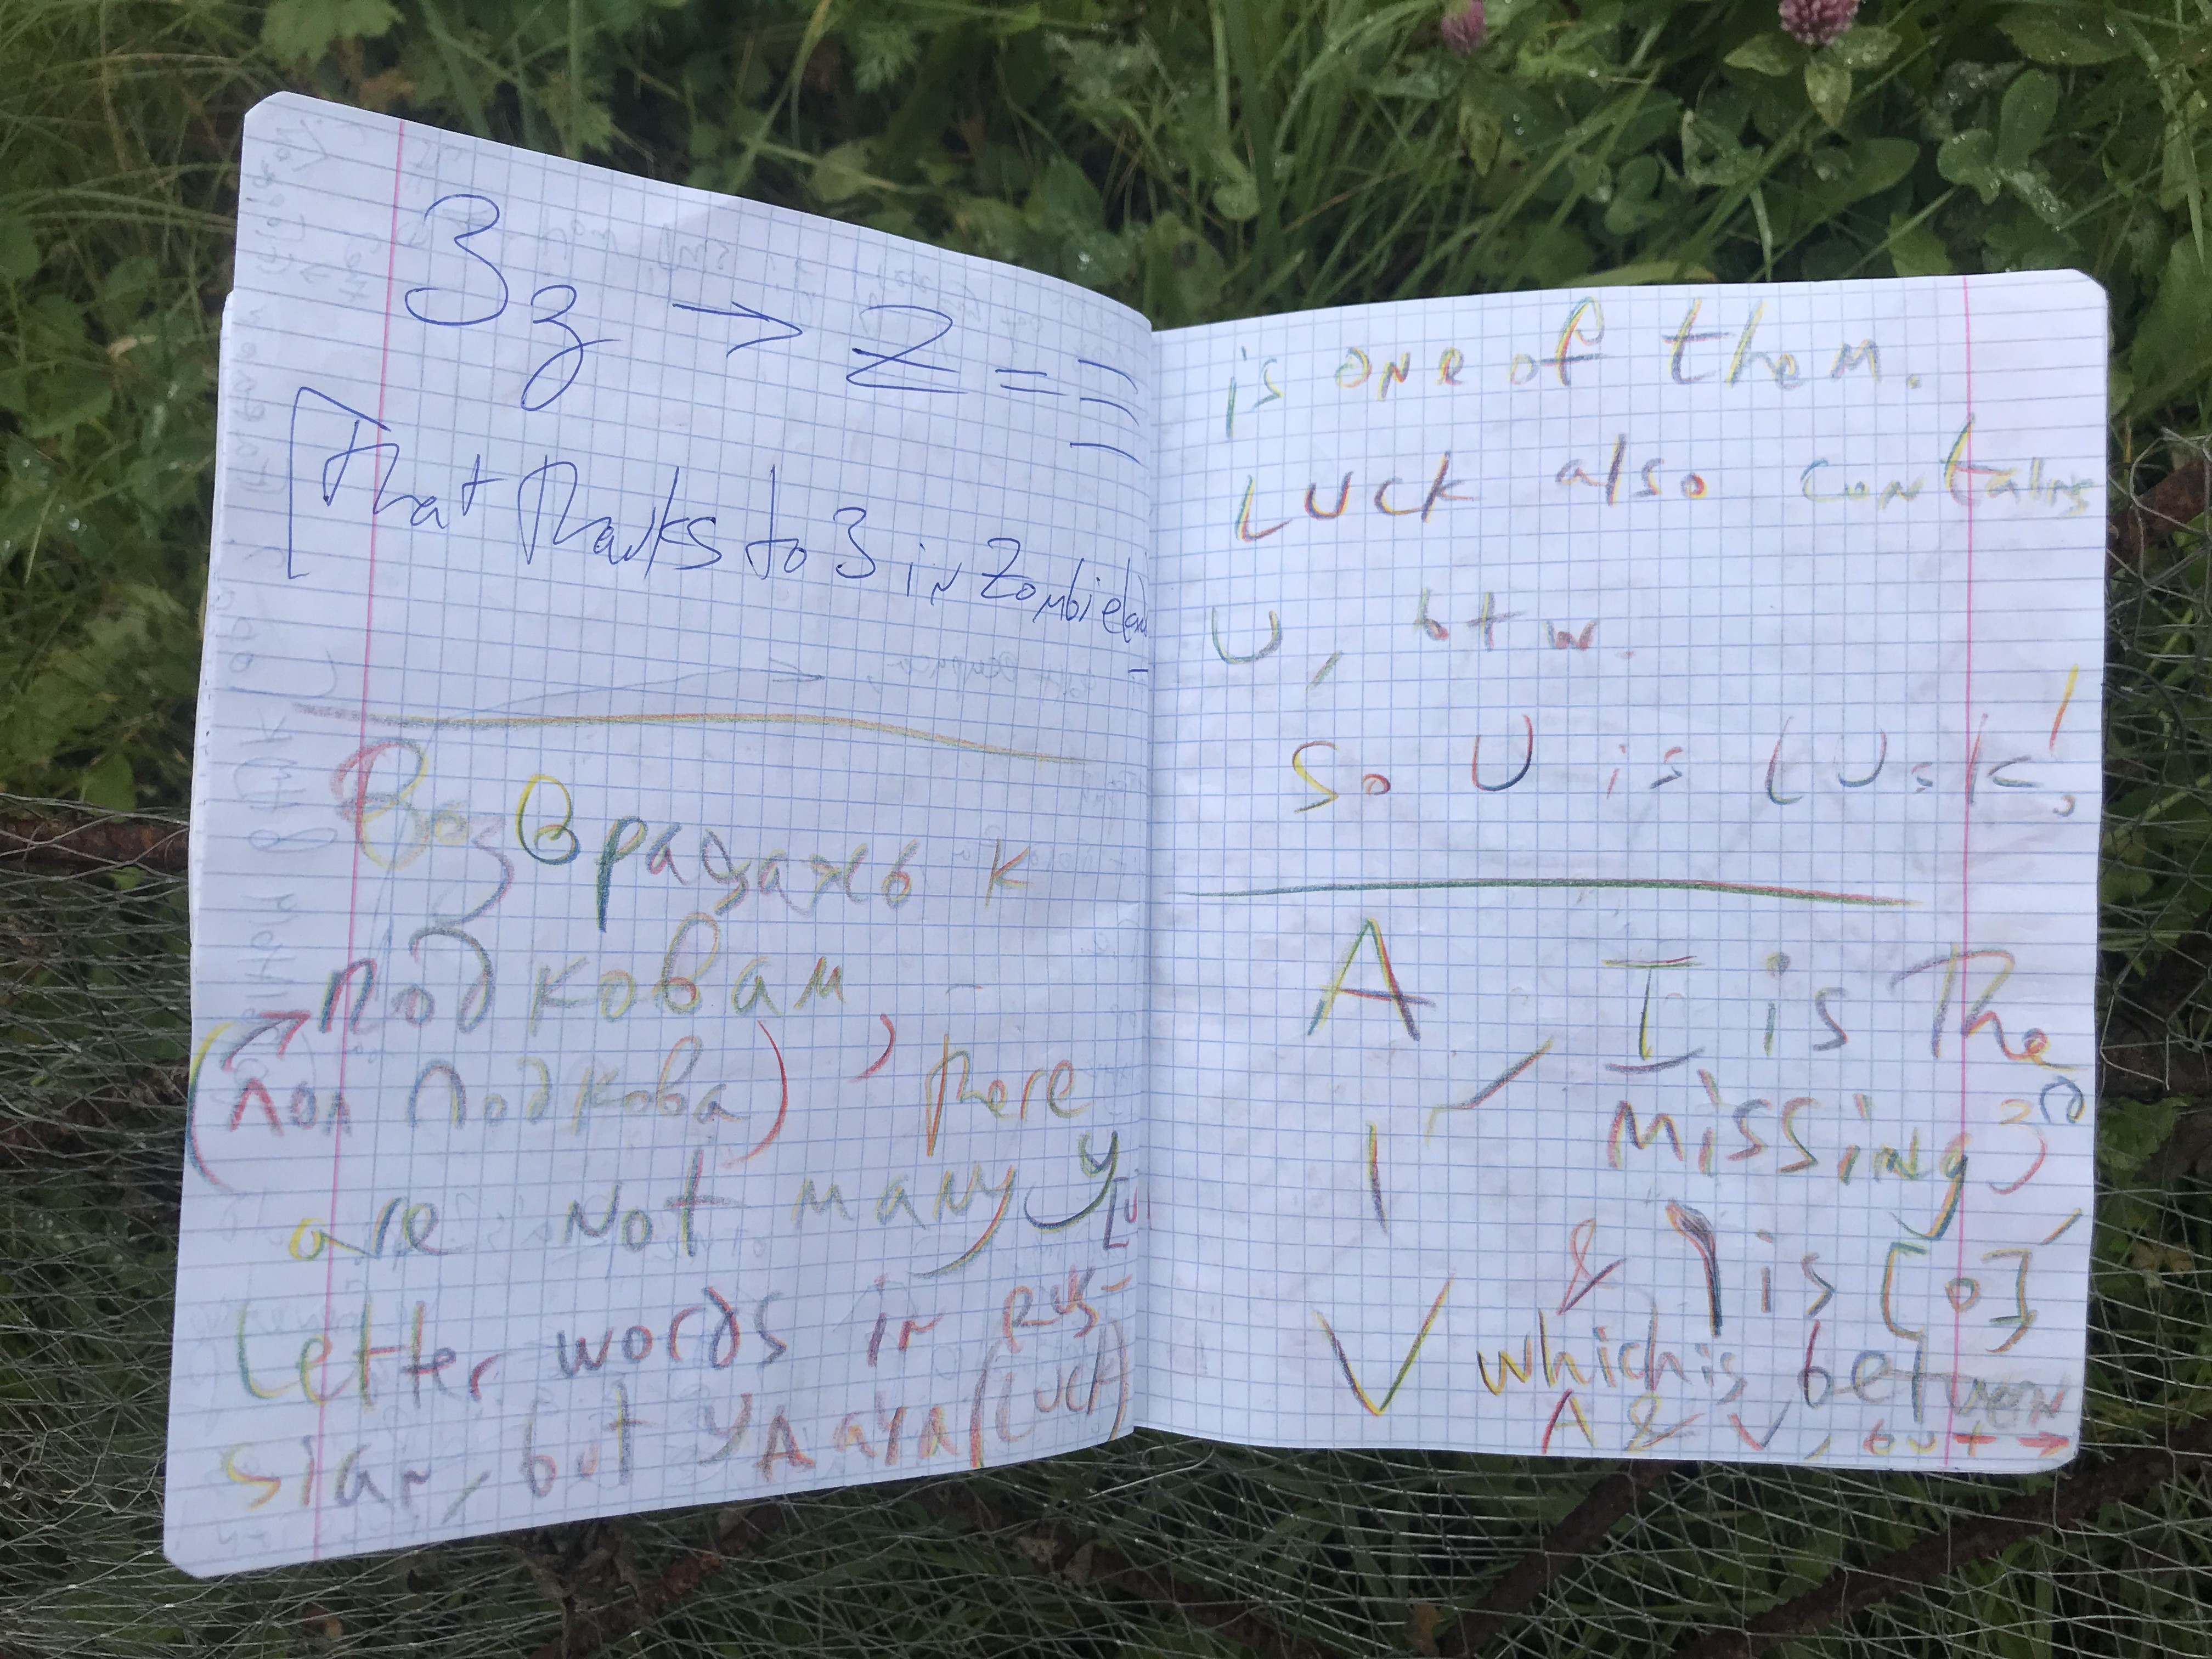 Зз → Z = =
[That thanks to 3 in Zombieland
Возвращаясь к
подковам,
(↗ ПОД Подкова), there
are not many У [u
letter words in Rus-
sian, but удача (Luck)
is one of them.
Luck also contains
U, btw.
So U is Luck!
A
I is the
missing 3
|
& ı is [o],
V which is between
Λ & V, but →